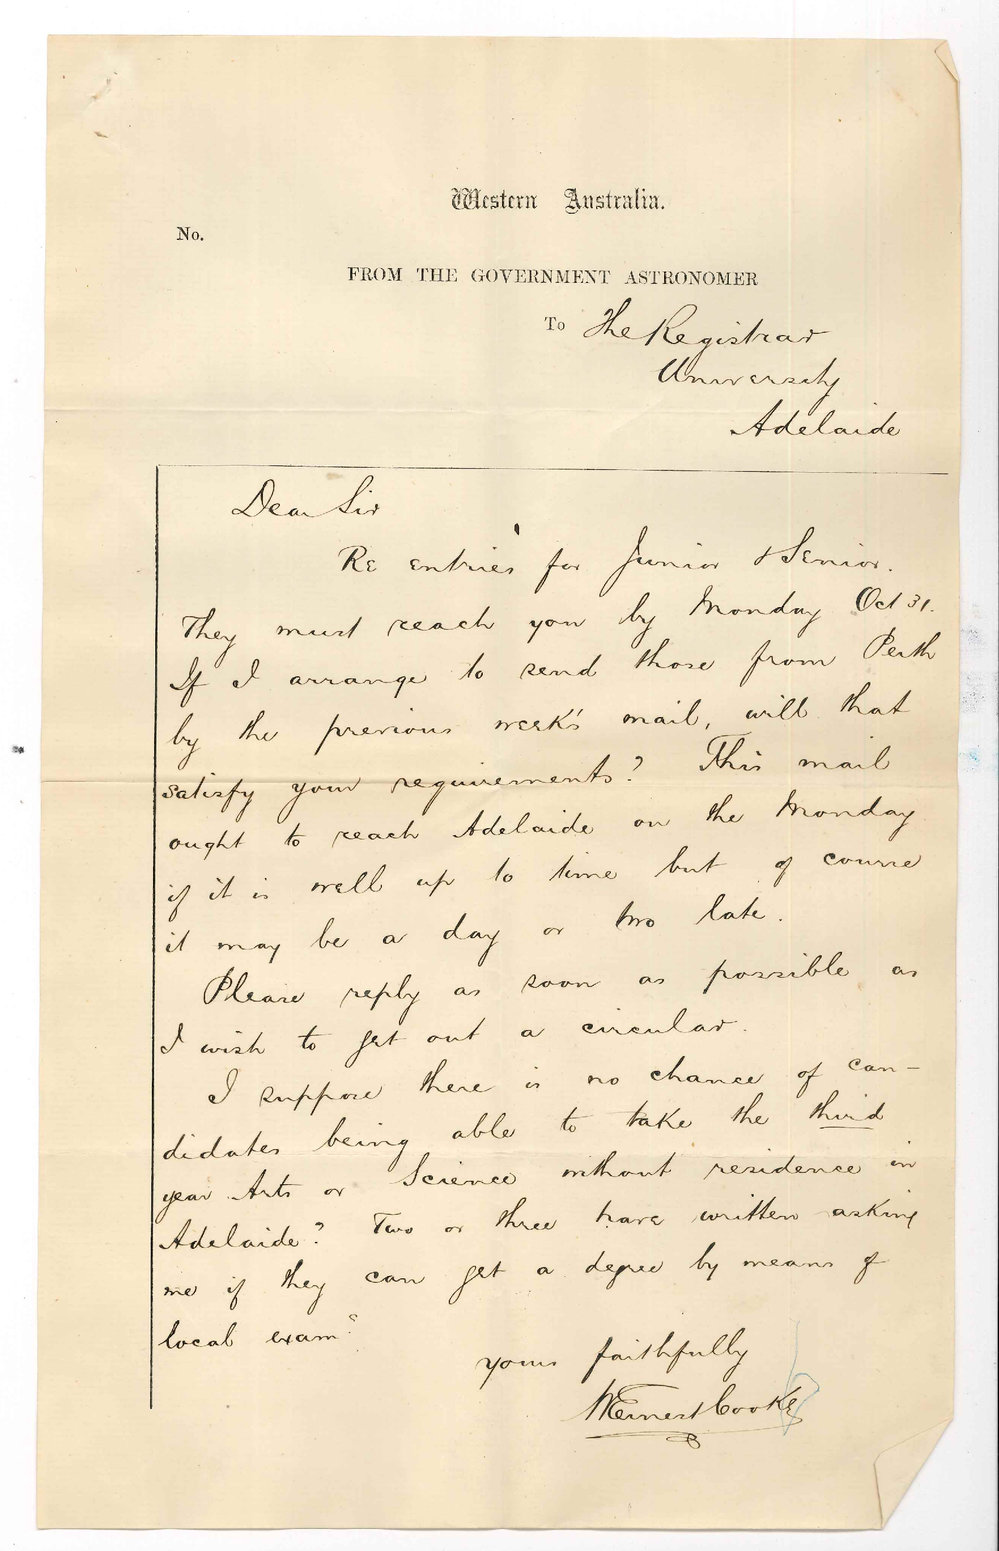 Western Australia.
No.
FROM THE GOVERNMENT ASTRONOMER
To The Registrar
University
Adelaide
Dear Sir
Re entries for Junior & Senior.
They must reach you by Monday Oct 31.
If I arrange to send those from Perth
by the previous week's mail, will that
satisfy your requirements? This mail
ought to reach Adelaide on the Monday
if it is well up to time but of course
it may be a day or two late.
Please reply as soon as possible as
I wish to get out a circular.
I suppose there is no chance of can-
didates being able to take the third
year Arts or Science without residence in
Adelaide? Two or three have written asking
me if they can get a degree by means of
local exams
Yours faithfully
W Ernest Cooke